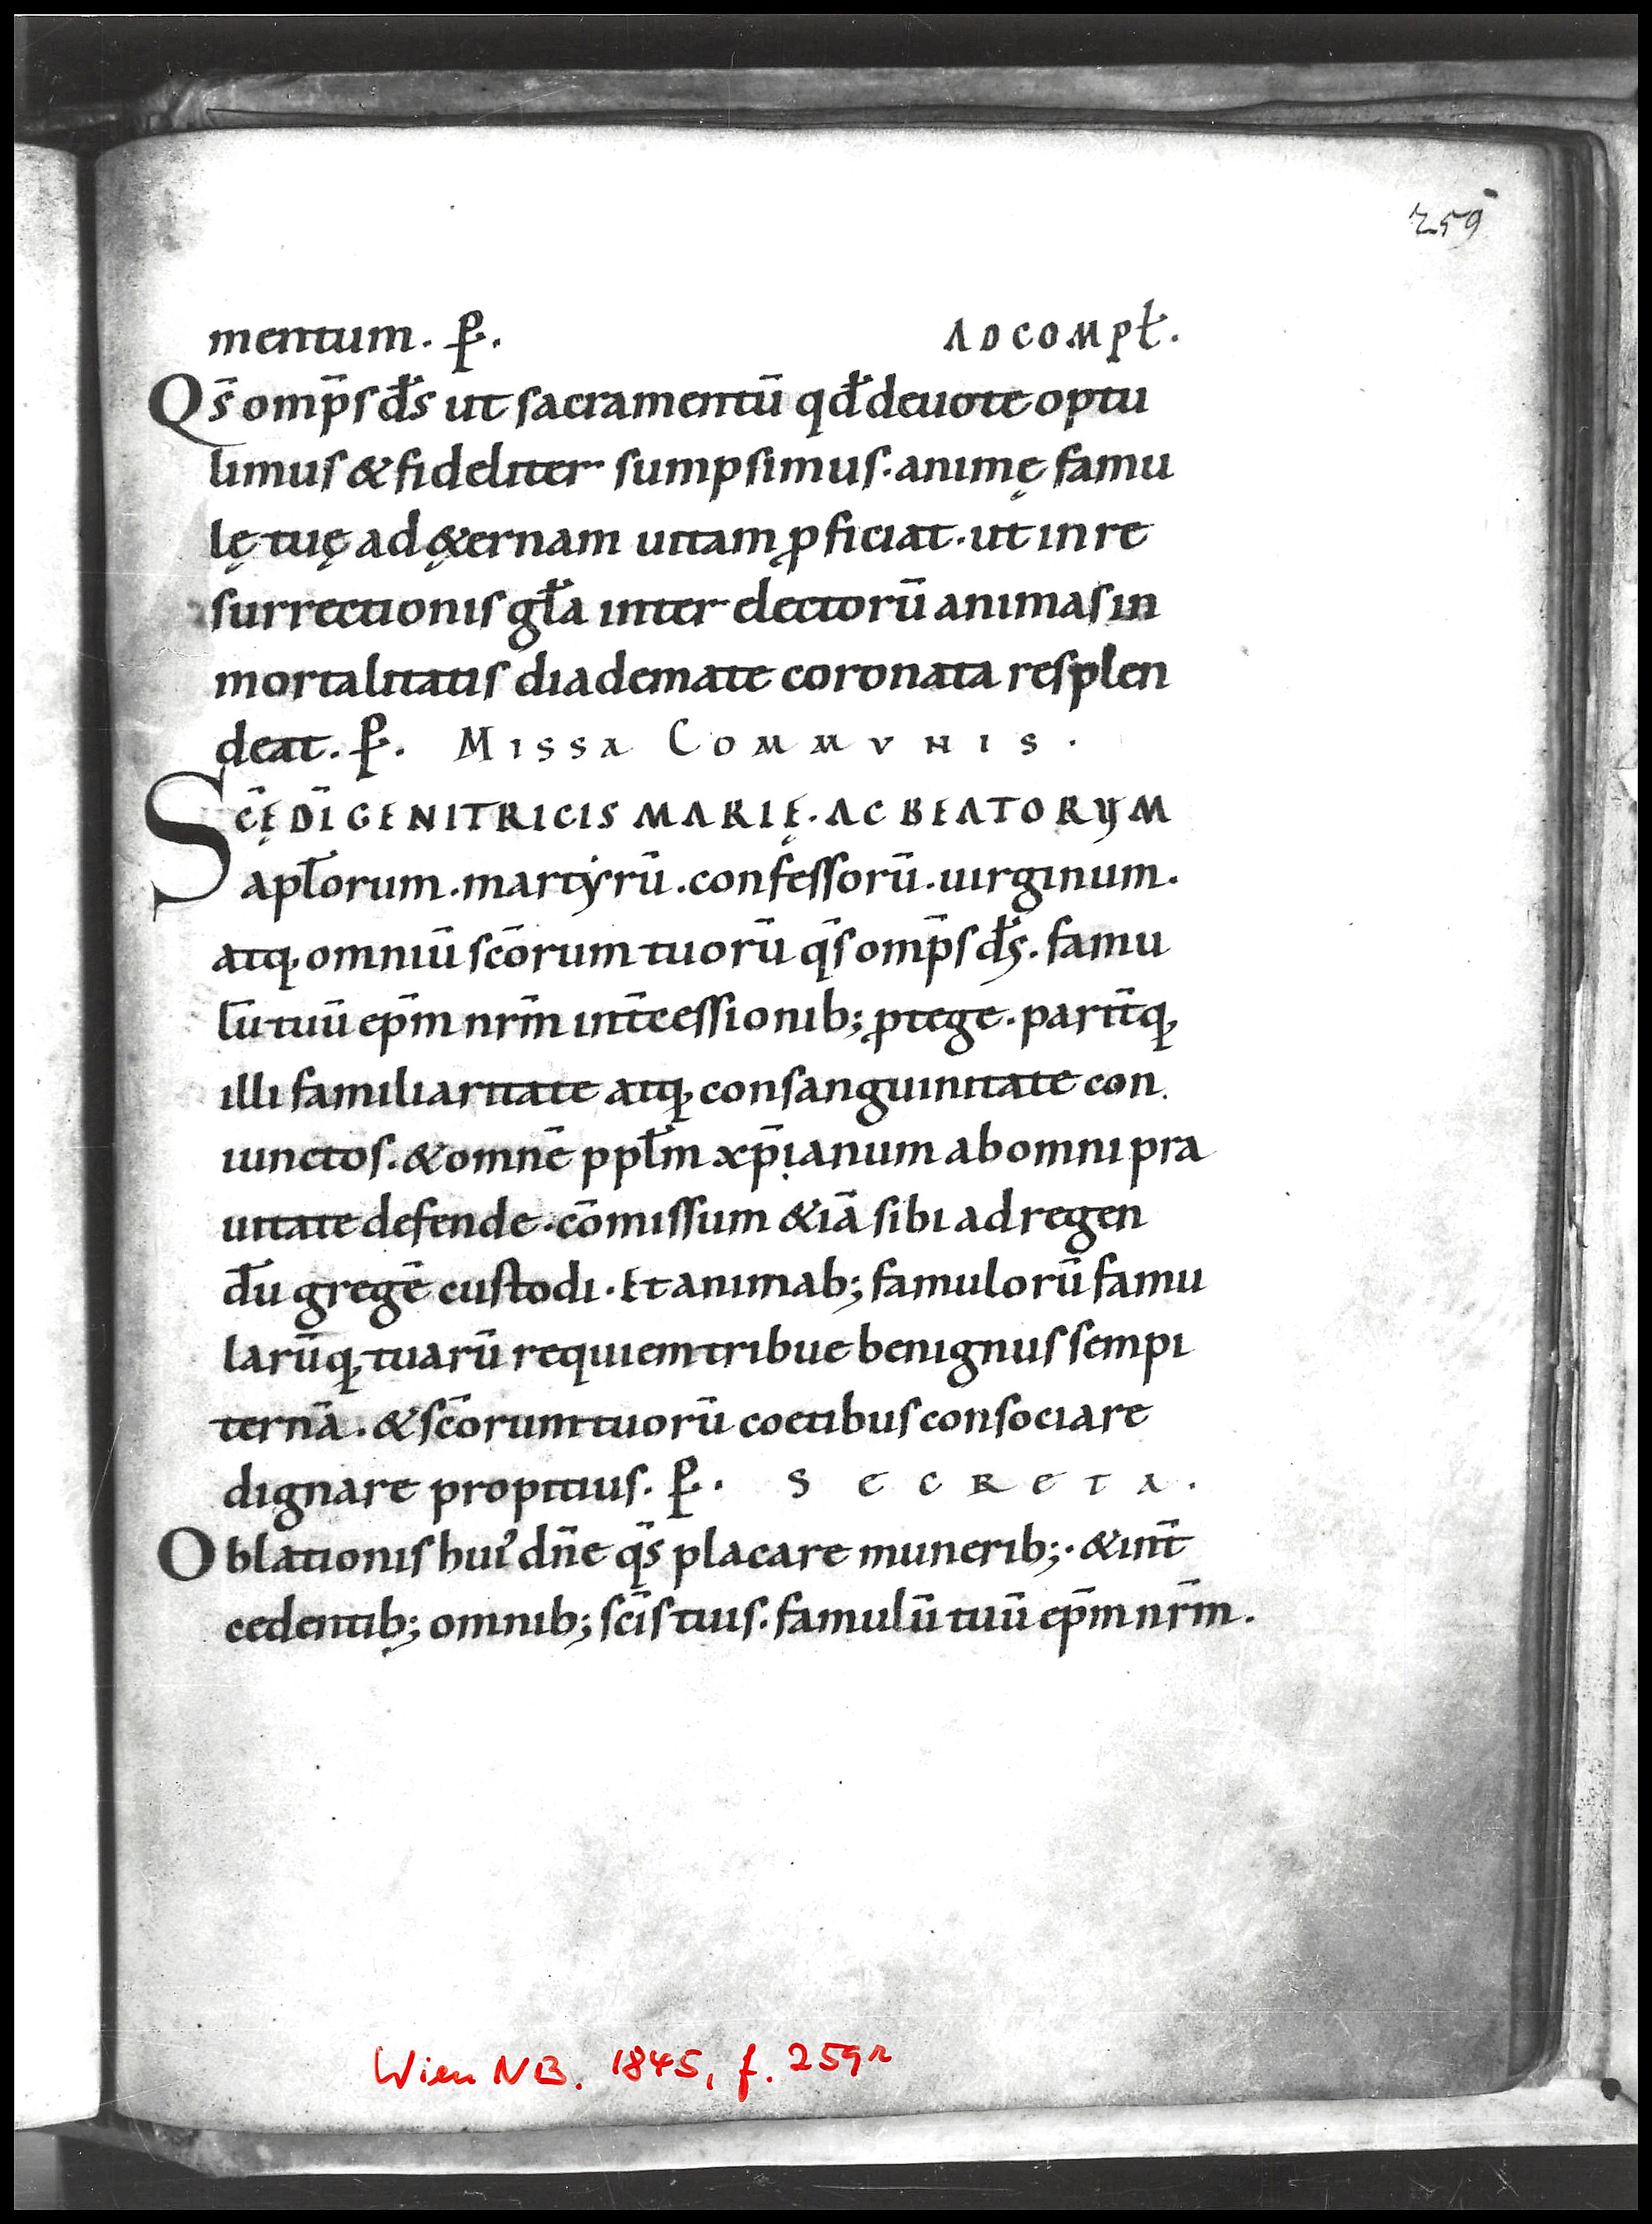 259
mentum. P̄. AD COMPŁ.
Qs̄ omp̄s d̄s ut sacramentū qd̄ deuote optu
limus & fideliter sumpsimus. animę famu
lę tuę ad ę&ernam uitam ꝓficiat. ut in re
surrectionis gła inter electorū animas in
mortalitatis diademate coronata resplen
deat. P̄. MISSA COMMVNIS.
SC̄Ę DĪ GENITRICIS MARIĘ. AC BEATORVM
apłorum. martẏrū. confessorū. uirginum.
atq; omniū sc̄orum tuorū qs̄ omp̄s d̄s. famu
lū tuū ep̄m nr̄m int̄cessionib; ꝓtege. parit̄q;
illi familiaritate atq; consanguinitate con
iunctos. & omnē ppłm xp̄ianum ab omni pra
uitate defende. cōmissum &iā sibi ad regen
dū gregē custodi. Et animab; famulorū famu
larūq; tuarū requiem tribue benignus sempi
ternā. & sc̄orum tuorū coetibus consociare
dignare propitius. P̄. SECRETA.
Oblationis hui᾿ dn̄e qs̄ placare munerib;. & int̄
cedentib; omnib; sc̄is tuis. famulū tuū ep̄m nr̄m.
Wien NB. 1845, f. 259r